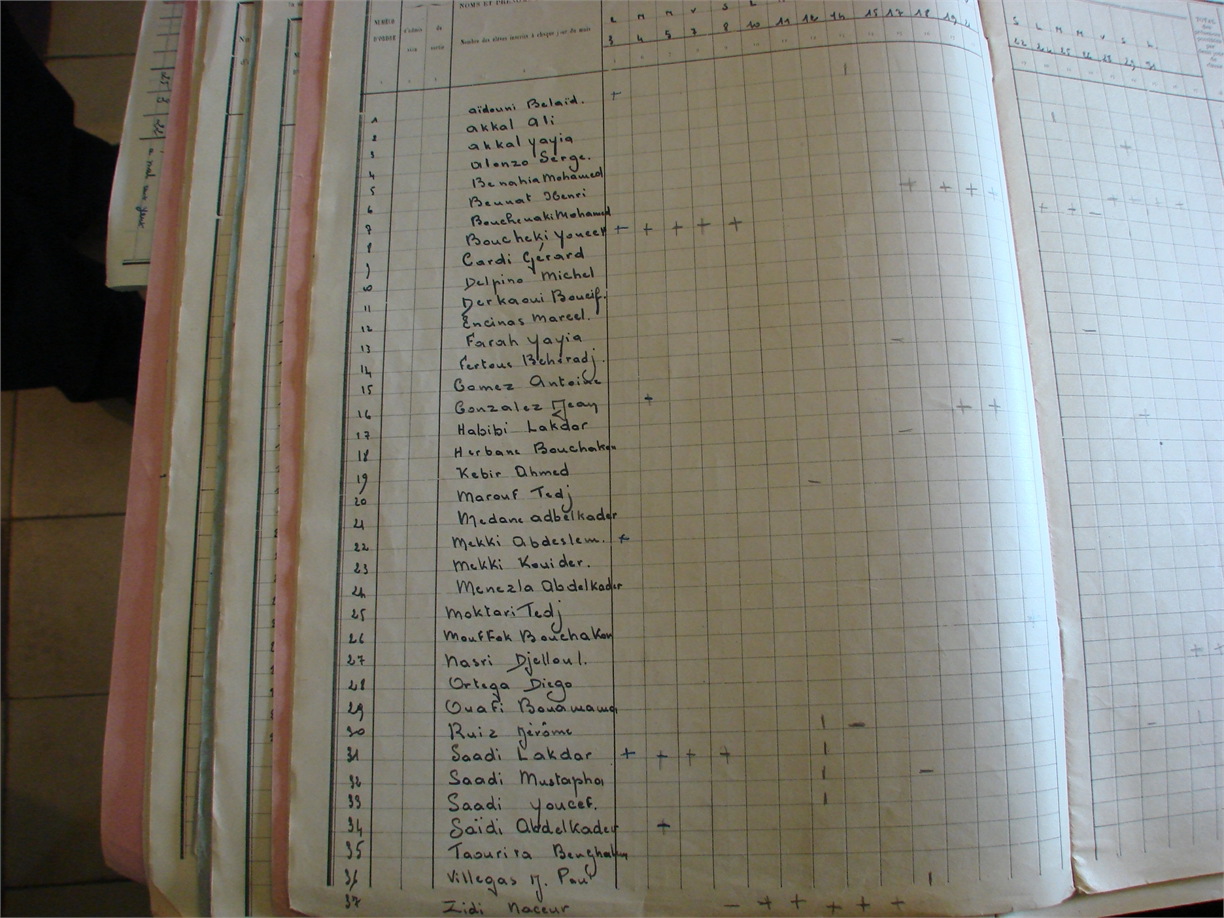 NUMÉRO
D'ORDRE
NOMS ET
Nombre des élèves inscrits à chaque jour du mois
L M M V S L
3 4 5 7 8 10 11 12 14 15 17 18 19
S L M M V S L
22 24 25 26 28 29 31
TOTAL
aïdouni Belaïd.
1 akkal Ali
2 akkal yayia
3 alonzo Serge.
4 Benahia Mohamed
5 Bennat Henri
6 Bouchenaki Mohamed
8 Boucheki Youcef
8 Cardi Gérard
9 Delpino Michel
10 Derkaoui Boucif.
11 Encinas Marcel.
12 Farah Yayia
13 Fertous Beheradj.
14 Gomez Antoine
15 Gonzalez Jean
16 Habibi Lakdar
17 Herbane Bouchakor
18 Kebir Ahmed
19 Marouf Tedj
20 Medane adbelkader
21 Mekki Abdeslem.
22 Mekki Kouider.
23 Menezla Abdelkader
24 Moktari Tedj
25 Mouffok Bouchakor
26 Nasri Djelloul.
27 Ortega Diego
28 Ouafi Bouamama
29 Ruiz Jérôme
30 Saadi Lakdar
31 Saadi Mustapha
32 Saadi Youcef.
33 Saïdi Abdelkader
34 Taourira
35 Villegas J. Paul
36 Zidi Naceur
37